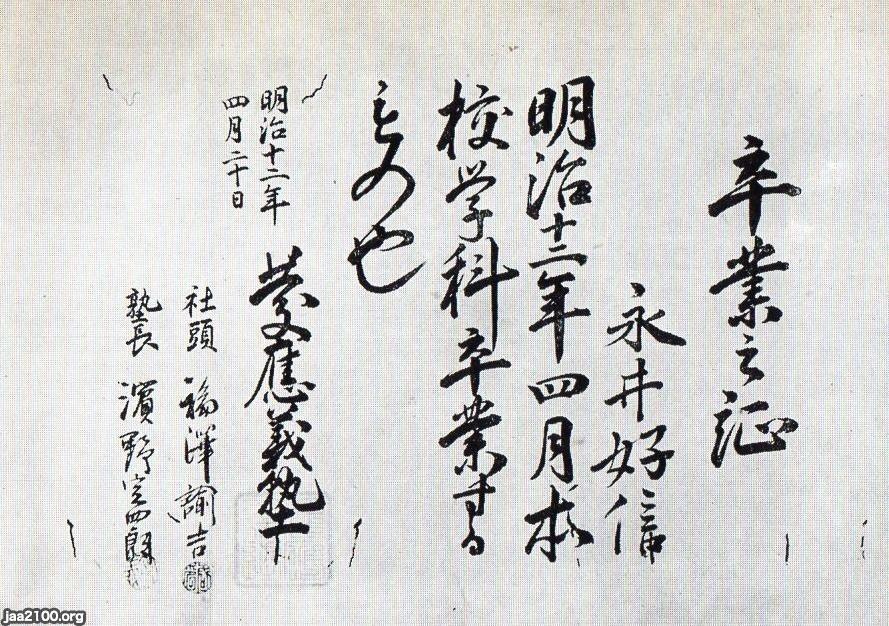 卒業之証
永井好信
明治十二年四月本
校学科卒業する
もの也
明治十二年
四月二十日
慶應義塾
社頭 福澤諭吉
塾長 濱野定四郎
jaa2100.org